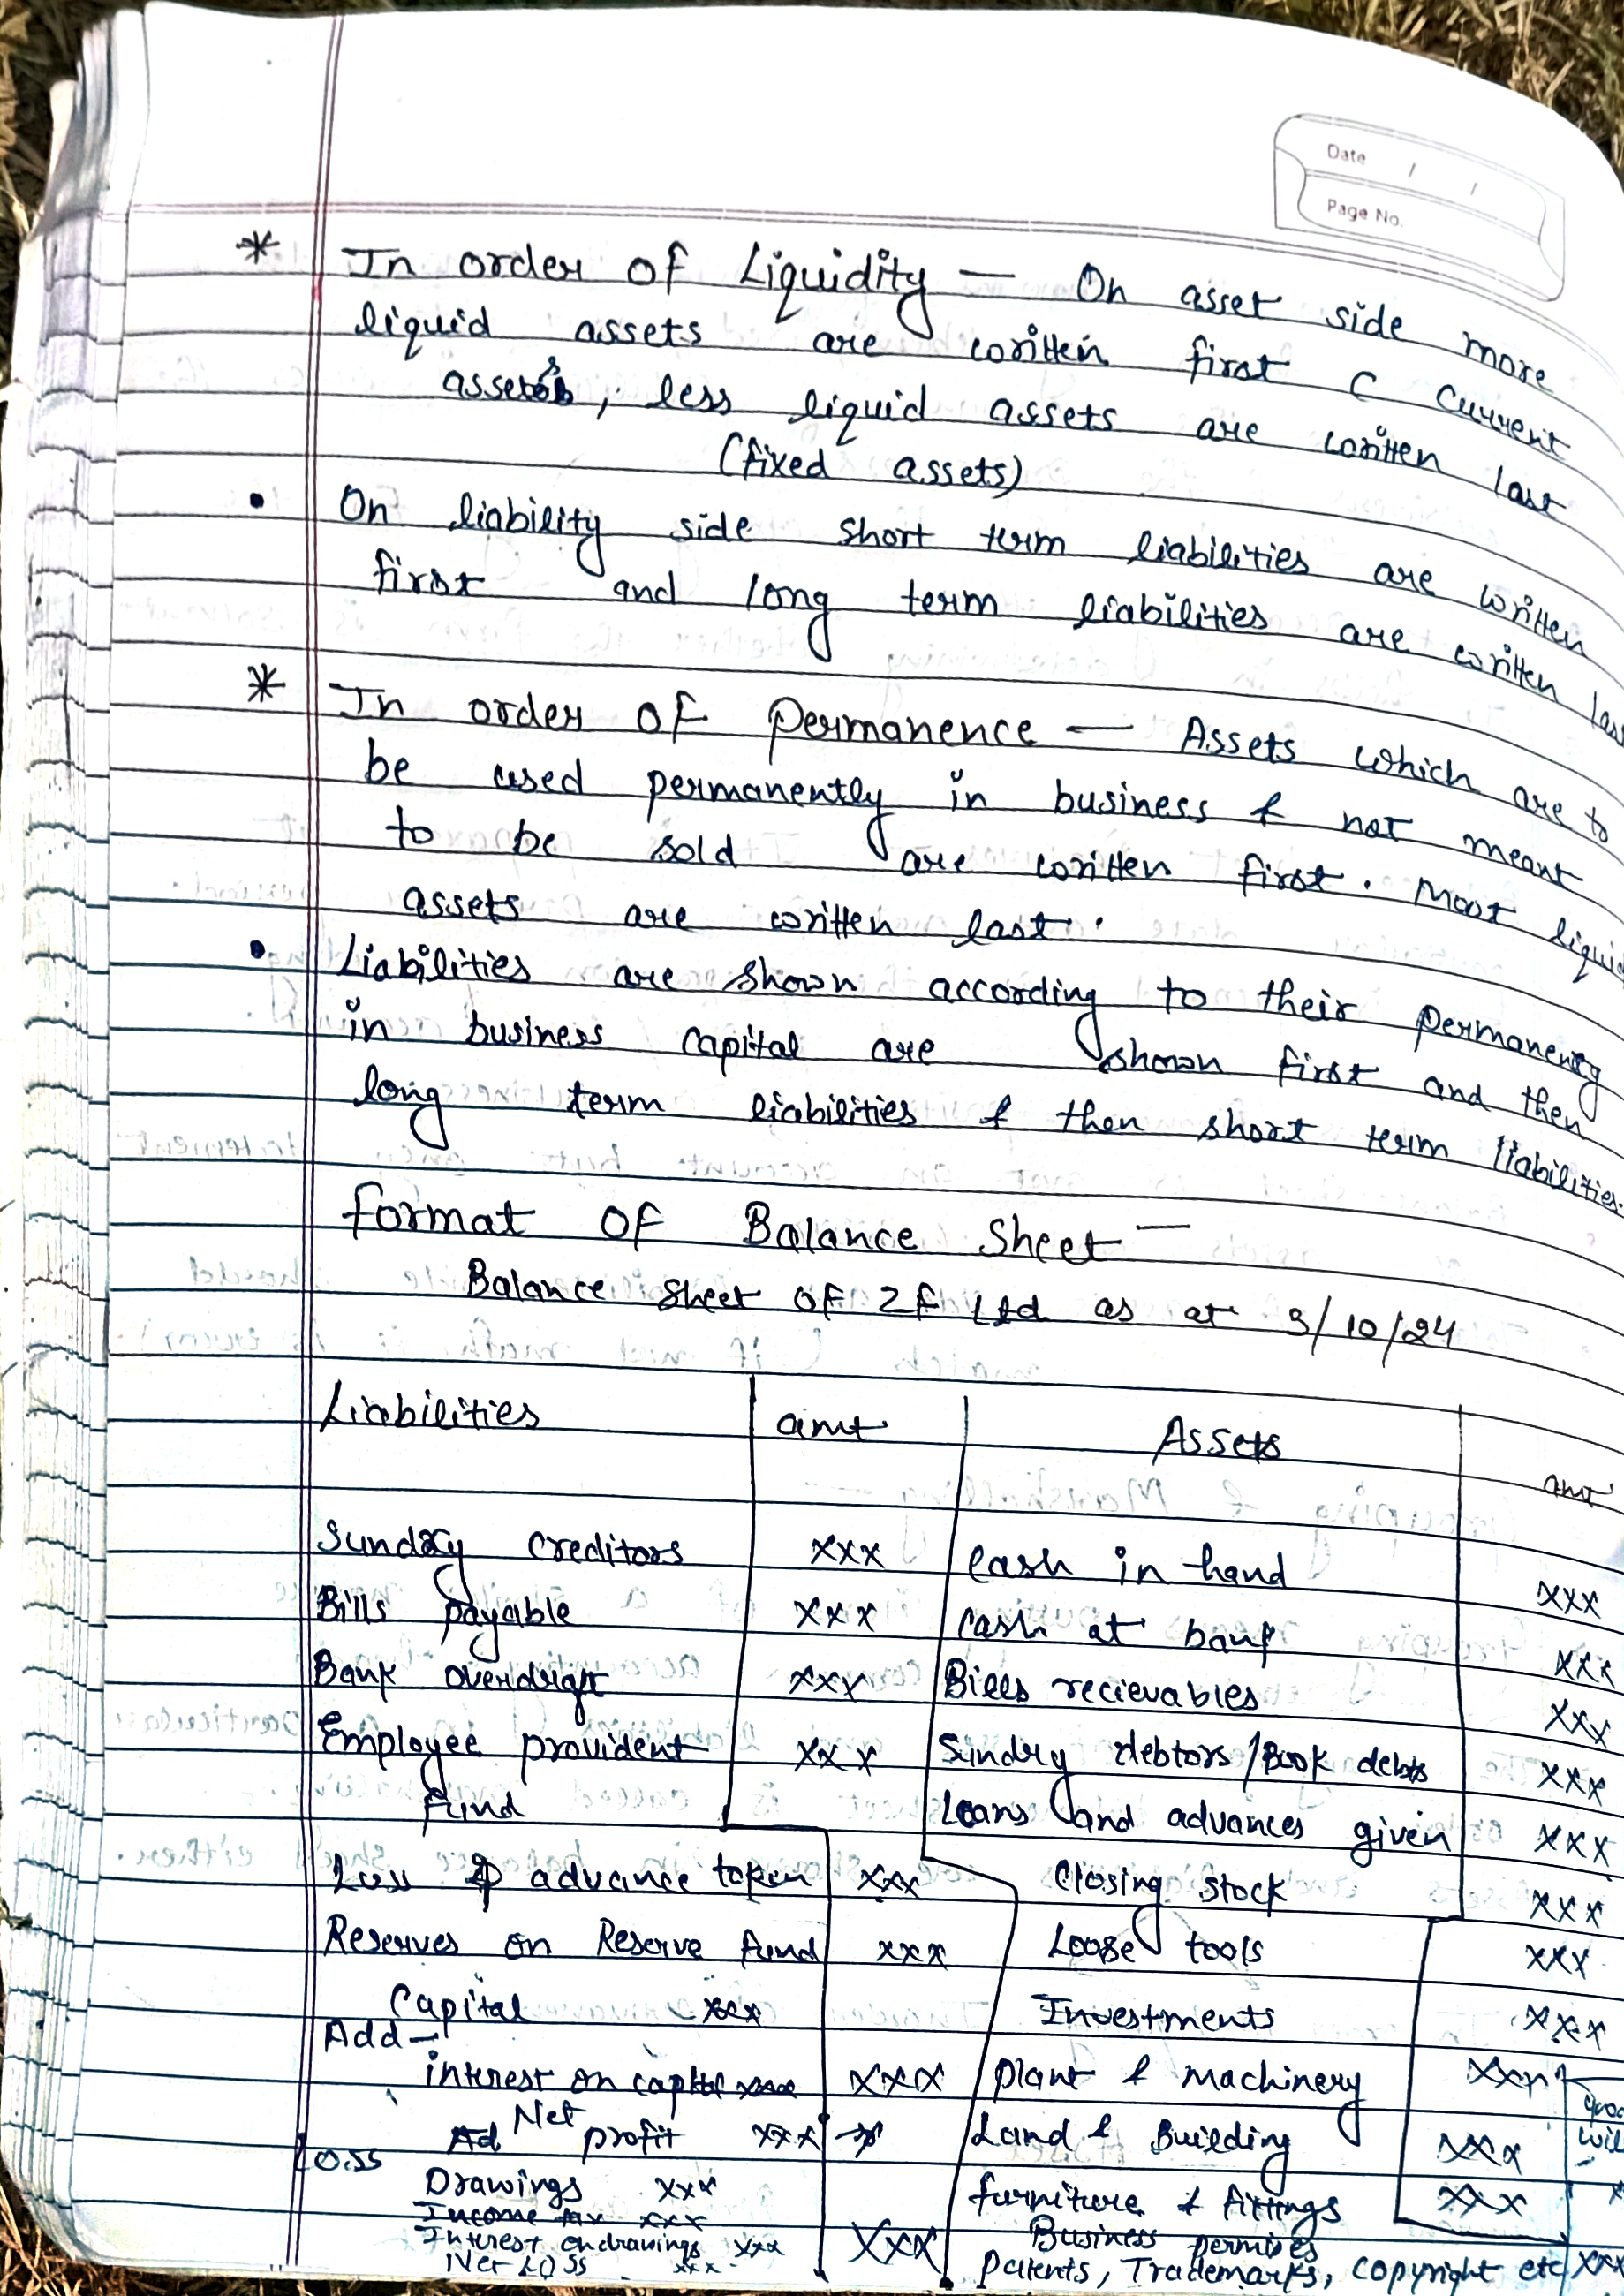 Date / /
Page No.
* In order of Liquidity — On asset side more
liquid assets are written first ( current
assets, less liquid assets are written last
(fixed assets)
• On liability side short term liabilities are written
first and long term liabilities are written las
* In order of Permanence — Assets which are to
be used permanently in business & not meant
to be sold are written first. Most liquid
assets are written last.
• Liabilities are shown according to their permanency
in business capital are shown first and then
long term liabilities & then short term liabilities.
Format of Balance Sheet —
Balance Sheet of ZF Ltd as at 3/10/24
Liabilities amt Assets amt
Sundry creditors xxx Cash in hand xxx
Bills payable xxx Cash at bank xxx
Bank overdraft xxx Bills recievables xxx
Employee provident xxx Sundry debtors/Book debts xxx
fund Loans and advances given xxx
advance taken xxx Closing stock xxx
Reserves on Reserve fund xxx Loose tools xxx
Capital xxx Investments xxx
Add—
interest on capital xxx xxx Plant & machinery xxx
Net profit xxx Land & Building xxx
Loss
Drawings xxx furniture & fittings xxx
Income tax xxx
Interest on drawings xxx xxx Business
Net Loss xxx Patents, Trademarks, copyright etc xxx